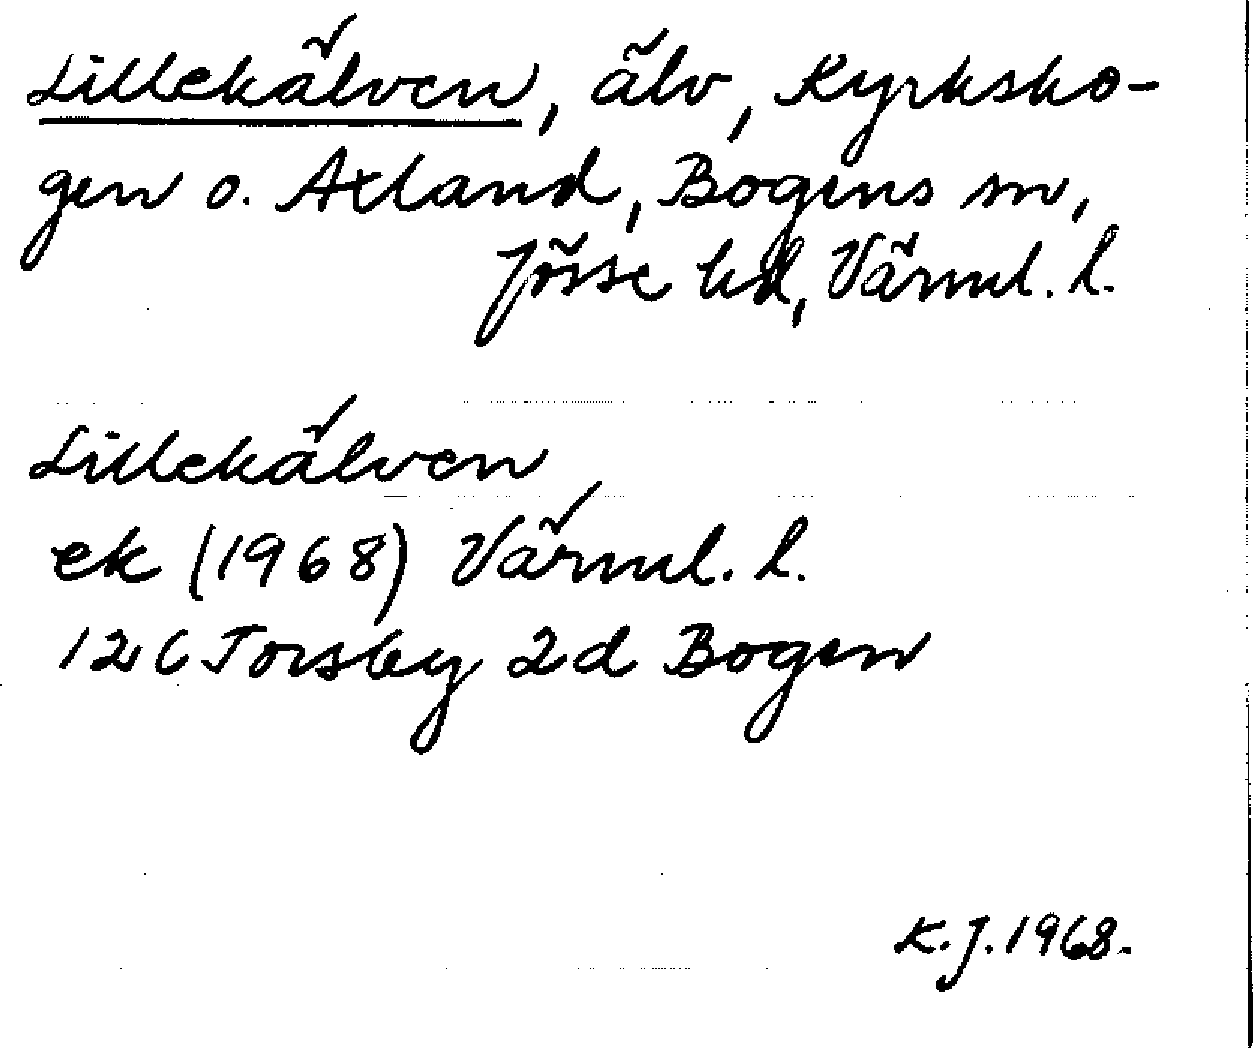 Lillekälven, älv, Kyrksko-
gen o. Axland, Bogens sn,
Jösse hd, Värml. l.
Lillekälven
ek (1968) Värml. l.
12 C Torsby 2d Bogen
K.J. 1968.